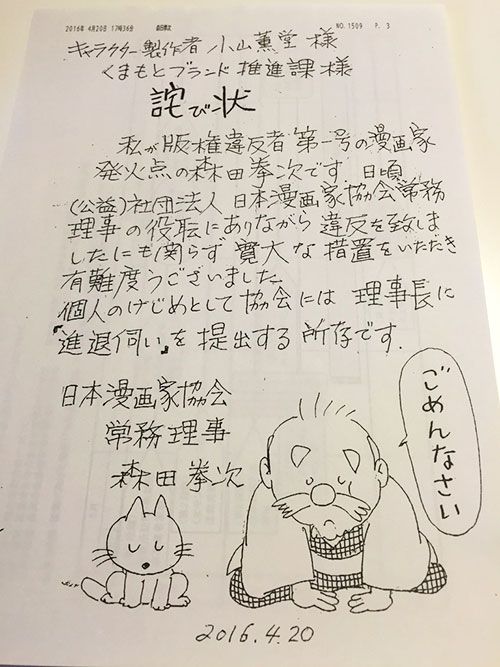 2016年 4月20日 17時36分 森田拳次 NO.1509 P. 3
キャラクター製作者 小山薫堂 様
くまもとブランド推進課様
詫び状
私が版権違反者第一号の漫画家
発火点の森田拳次です. 日頃
(公益)社団法人 日本漫画家協会常務
理事の役職にありながら違反を致しま
したにも関らず 寛大な措置をいただき
有難度うございました.
個人のけじめとして協会には 理事長に
『進退伺い』を提出する所存です.
日本漫画家協会
常務理事
森田拳次
ごめんなさい
2016.4.20